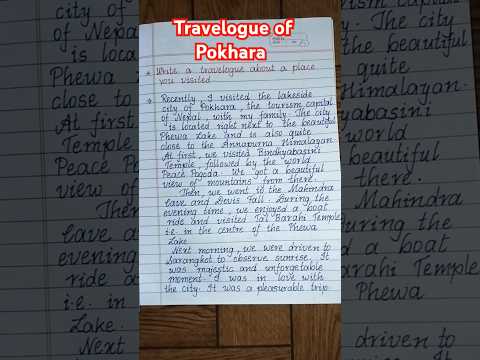 Travelogue of
Pokhara
* Write a travelogue about a place
you visited.
→ Recently, I visited the lakeside
city of Pokhara, the tourism capital
of Nepal, with my family. The city
is located right next to the beautiful
Phewa Lake and is also quite
close to the Annapurna Himalayan.
At first, we visited Bindhyabasini
Temple, followed by the world
Peace Pagoda. We got a beautiful
view of mountains from there.
Then we went to the Mahendra
cave and Devis Fall. During the
evening time, we enjoyed a boat
ride and visited Tal Barahi Temple
i.e. in the centre of the Phewa
Lake.
Next morning, we were driven to
Sarangkot to observe sunrise. It
was majestic and unforgetable
moment. I was in love with
the city. It was a pleasurable trip.